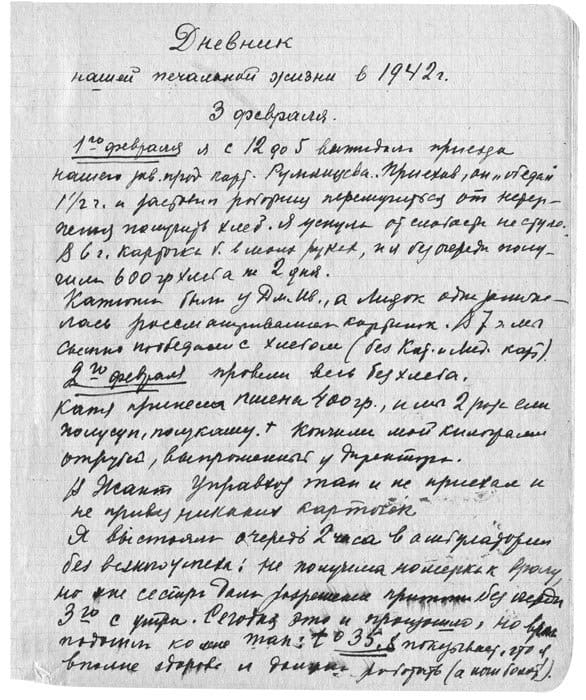 Дневник
нашей печальной жизни в 1942 г.
3 февраля.
1го февраля я с 12 до 5 выжидала приезда
нашего зав. прод. карт. Румянцева. Приехав, он "обедал"
1½ г. и заставил публику перемучиться от нетер-
пения получить хлеб. Я уснула от слабости на стуле.
В 6 г. карточка б. в моих руках, и я без очереди полу-
чила 600 гр хлеба на 2 дня.
Катюши были у Дм. Ив., а Лидок одна занима-
лась рассматриванием картинок. В 7 ч мы
сытно пообедали с хлебом (без Кат. и Лид. карт).
2го февраля провели весь без хлеба.
Катя принесла пшена 400 гр., и мы 2 раза ели
полусуп, полукашу. + Кончили мой килограмм
отрубей, выпрошенный у Директора.
В Жакт Управхоз так и не приехал и
не привез никаких карточек
Я выстояла очередь 2 часа в амбулатории
без всякого успеха: не получила номерка к врачу,
но мне сестра дала разрешение притти без очереди
3го с утра. Сегодня это и произошло, но врач
подошла ко мне так: t° 35,8 показывает, что я
вполне здорова и должна работать (а ноги болят).